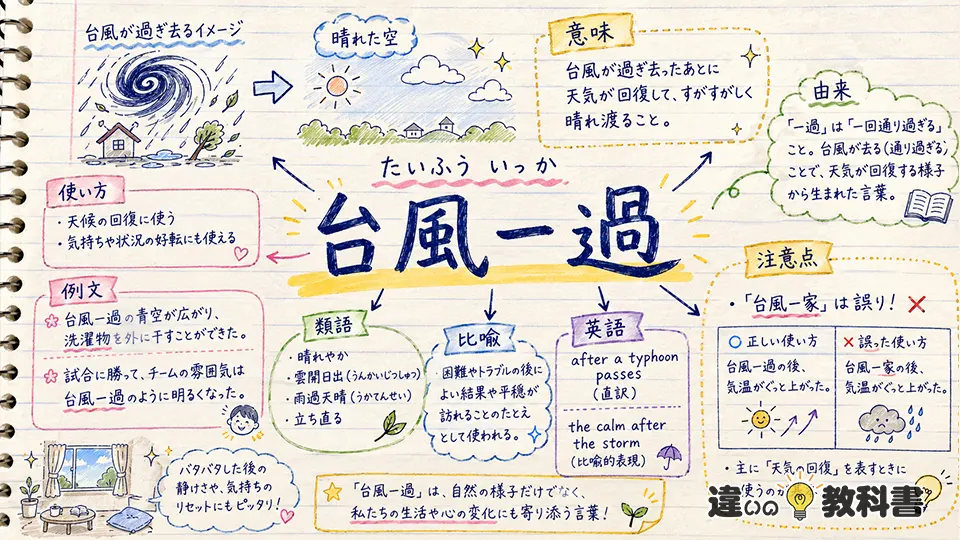 台風が過ぎ去るイメージ
晴れた空
意味
台風が過ぎ去ったあとに
天気が回復して、すがすがしく
晴れ渡ること。
由来
「一過」は「一回通り過ぎる」
こと。台風が去る(通り過ぎる)
ことで、天気が回復する様子
から生まれた言葉。
たいふう いっか
台風一過
使い方
・天候の回復に使う
・気持ちや状況の好転にも使える
例文
台風一過の青空が広がり、
洗濯物を外に干すことができた。
試合に勝って、チームの雰囲気は
台風一過のように明るくなった。
類語
・晴れやか
・雲開日出(うんかいじつしゅつ)
・雨過天晴(うかてんせい)
・立ち直る
比喩
・困難やトラブルの後に
よい結果や平穏が
訪れることのたとえ
として使われる。
英語
after a typhoon
passes
(直訳)
the calm after
the storm
(比喩的表現)
注意点
・「台風一家」は誤り!
正しい使い方
台風一過の後、
気温がぐっと上がった。
× 誤った使い方
台風一家の後、
気温がぐっと上がった。
・主に「天気の回復」を表すときに
使うのが
バタバタした後の
静けさや、気持ちの
リセットにもピッタリ!
「台風一過」は、自然の様子だけでなく、
私たちの生活や心の変化にも寄り添う言葉!
違いの教科書